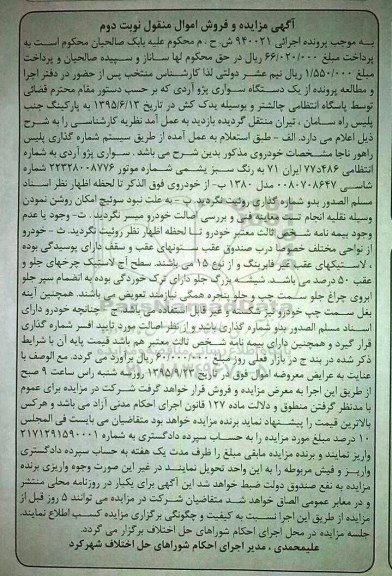 آگهی مزایده و فروش اموال منقول نوبت دوم
به موجب پرونده اجرائی ۹۴۰۰۲۱ ش . ح ، م محکوم علیه بابک صالحیان محکوم است به
پرداخت مبلغ ۶۶/۰۲۰/۰۰۰ ریال در حق محکوم لها ساناز و سپیده صالحیان و پرداخت
مبلغ ۱/۵۵۰/۰۰۰ ریال نیم عشر دولتی لذا کارشناس منتخب پس از حضور در دفتر اجرا
و مطالعه پرونده از یک دستگاه سواری پژو آردی که بر حسب دستور مقام محترم قضائی
توسط پاسگاه انتظامی چالشتر و بوسیله یدک کش در تاریخ ۱۳۹۵/۶/۱۳ به پارکینگ جنب
پلیس راه سامان ، تیران منتقل گردیده بازدید به عمل آمد نظریه کارشناسی را به شرح
ذیل اعلام می دارد. الف - طبق استعلام به عمل آمده از طریق سیستم شماره گذاری پلیس
راهور ناجا مشخصات خودروی مذکور بدین شرح می باشد . سواری پژو آردی به شماره
انتظامی ۴۸۶د۷۷ ایران ۷۱ به رنگ سبز یشمی شماره موتور ۲۲۳۲۸۰۰۸۷۷۶ شماره
شاسی ۰۰۸۰۷۰۸۶۴۷ مدل ۱۳۸۰ ب- از خودروی فوق الذکر تا لحظه اظهار نظر اسناد
مسلم الصدور بدو شماره گذاری روئیت نگردید. پ - به علت نبود سوئیچ امکان روشن نمودن
وسیله نقلیه انجام تست معاینه فنی و بررسی اصالت خودرو میسر نگردید . ت- وجود یا عدم
وجود بیمه نامه شخص ثالث معتبر خودرو تا لحظه اظهار نظر روئیت نگردید. ث - خودرو
از نواحی مختلف خصوصا درب صندوق عقب ستونهای عقب و سقف دارای پوسیدگی بوده
، لاستیکهای عقب غیر فابریک و از نوع ۱۵ می باشند. سطح آج لاستیک چرخهای جلو و
عقب ۵۰ درصد می باشد. شیشه بزرگ جلو دارای ترک خوردگی بوده به انضمام سپر جلو
ابروی چراغ جلو سمت چپ و جلو پنجره همگی نیازمند تعویض می باشند. همچنین آینه
بغل سمت چپ خودرو نیز شکسته و غیر قابل استفاده می باشد. ج - چنانچه خودرو دارای
اسناد مسلم الصدور بدو شماره گذاری باشد و از نظر اصالت مورد تایید افسر شماره گذاری
قرار گیرد و همچنین دارای بیمه نامه شخص ثالث معتبر هم باشد قیمت پایه آن با شرایط
ذکر شده در بند ج در بازار فعلی روز مبلغ ۶۰/۰۰۰/۰۰۰ ریال برآورد می گردد. مع الوصف با
عنایت به عرایض معروضه اموال فوق در تاریخ ۱۳۹۵/۹/۲۳ روز سه شنبه راس ساعت ۹ صبح
از طریق این اجرا به معرض مزایده و فروش قرار خواهد گرفت شرکت در مزایده برای عموم
با مدنظر گرفتن منطوق و دلالت ماده ۱۲۷ قانون اجرای احکام مدنی آزاد می باشد و هرکس
بالاترین قیمت را پیشنهاد نماید برنده مزایده خواهد بود متقاضیان می بایست فی المجلس
۱۰ درصد مبلغ مورد مزایده را به حساب سپرده دادگستری به شماره ۲۱۷۱۲۹۱۵۹۰۰۰۱
واریز نمایند و برنده مزایده مابقی مبلغ را ظرف مدت یک هفته به حساب سپرده دادگستری
واریز و فیش مربوطه را به این واحد تحویل نمایند در غیر این صورت وجوه واریزی برنده
مزایده به نفع صندوق دولت ضبط خواهد شد این آگهی برای یکبار در روزنامه محلی منتشر
و در معابر عمومی الصاق خواهد شد متقاضیان شرکت در مزایده می توانند ۵ روز قبل از
مزایده از طریق این اجرا نسبت به کیفیت و چگونگی برگزاری مزایده کسب اطلاع نمایند.
جلسه مزایده در محل اجرای احکام شوراهای حل اختلاف برگزار می گردد.
علیمحمدی ، مدیر اجرای احکام شوراهای حل اختلاف شهرکرد